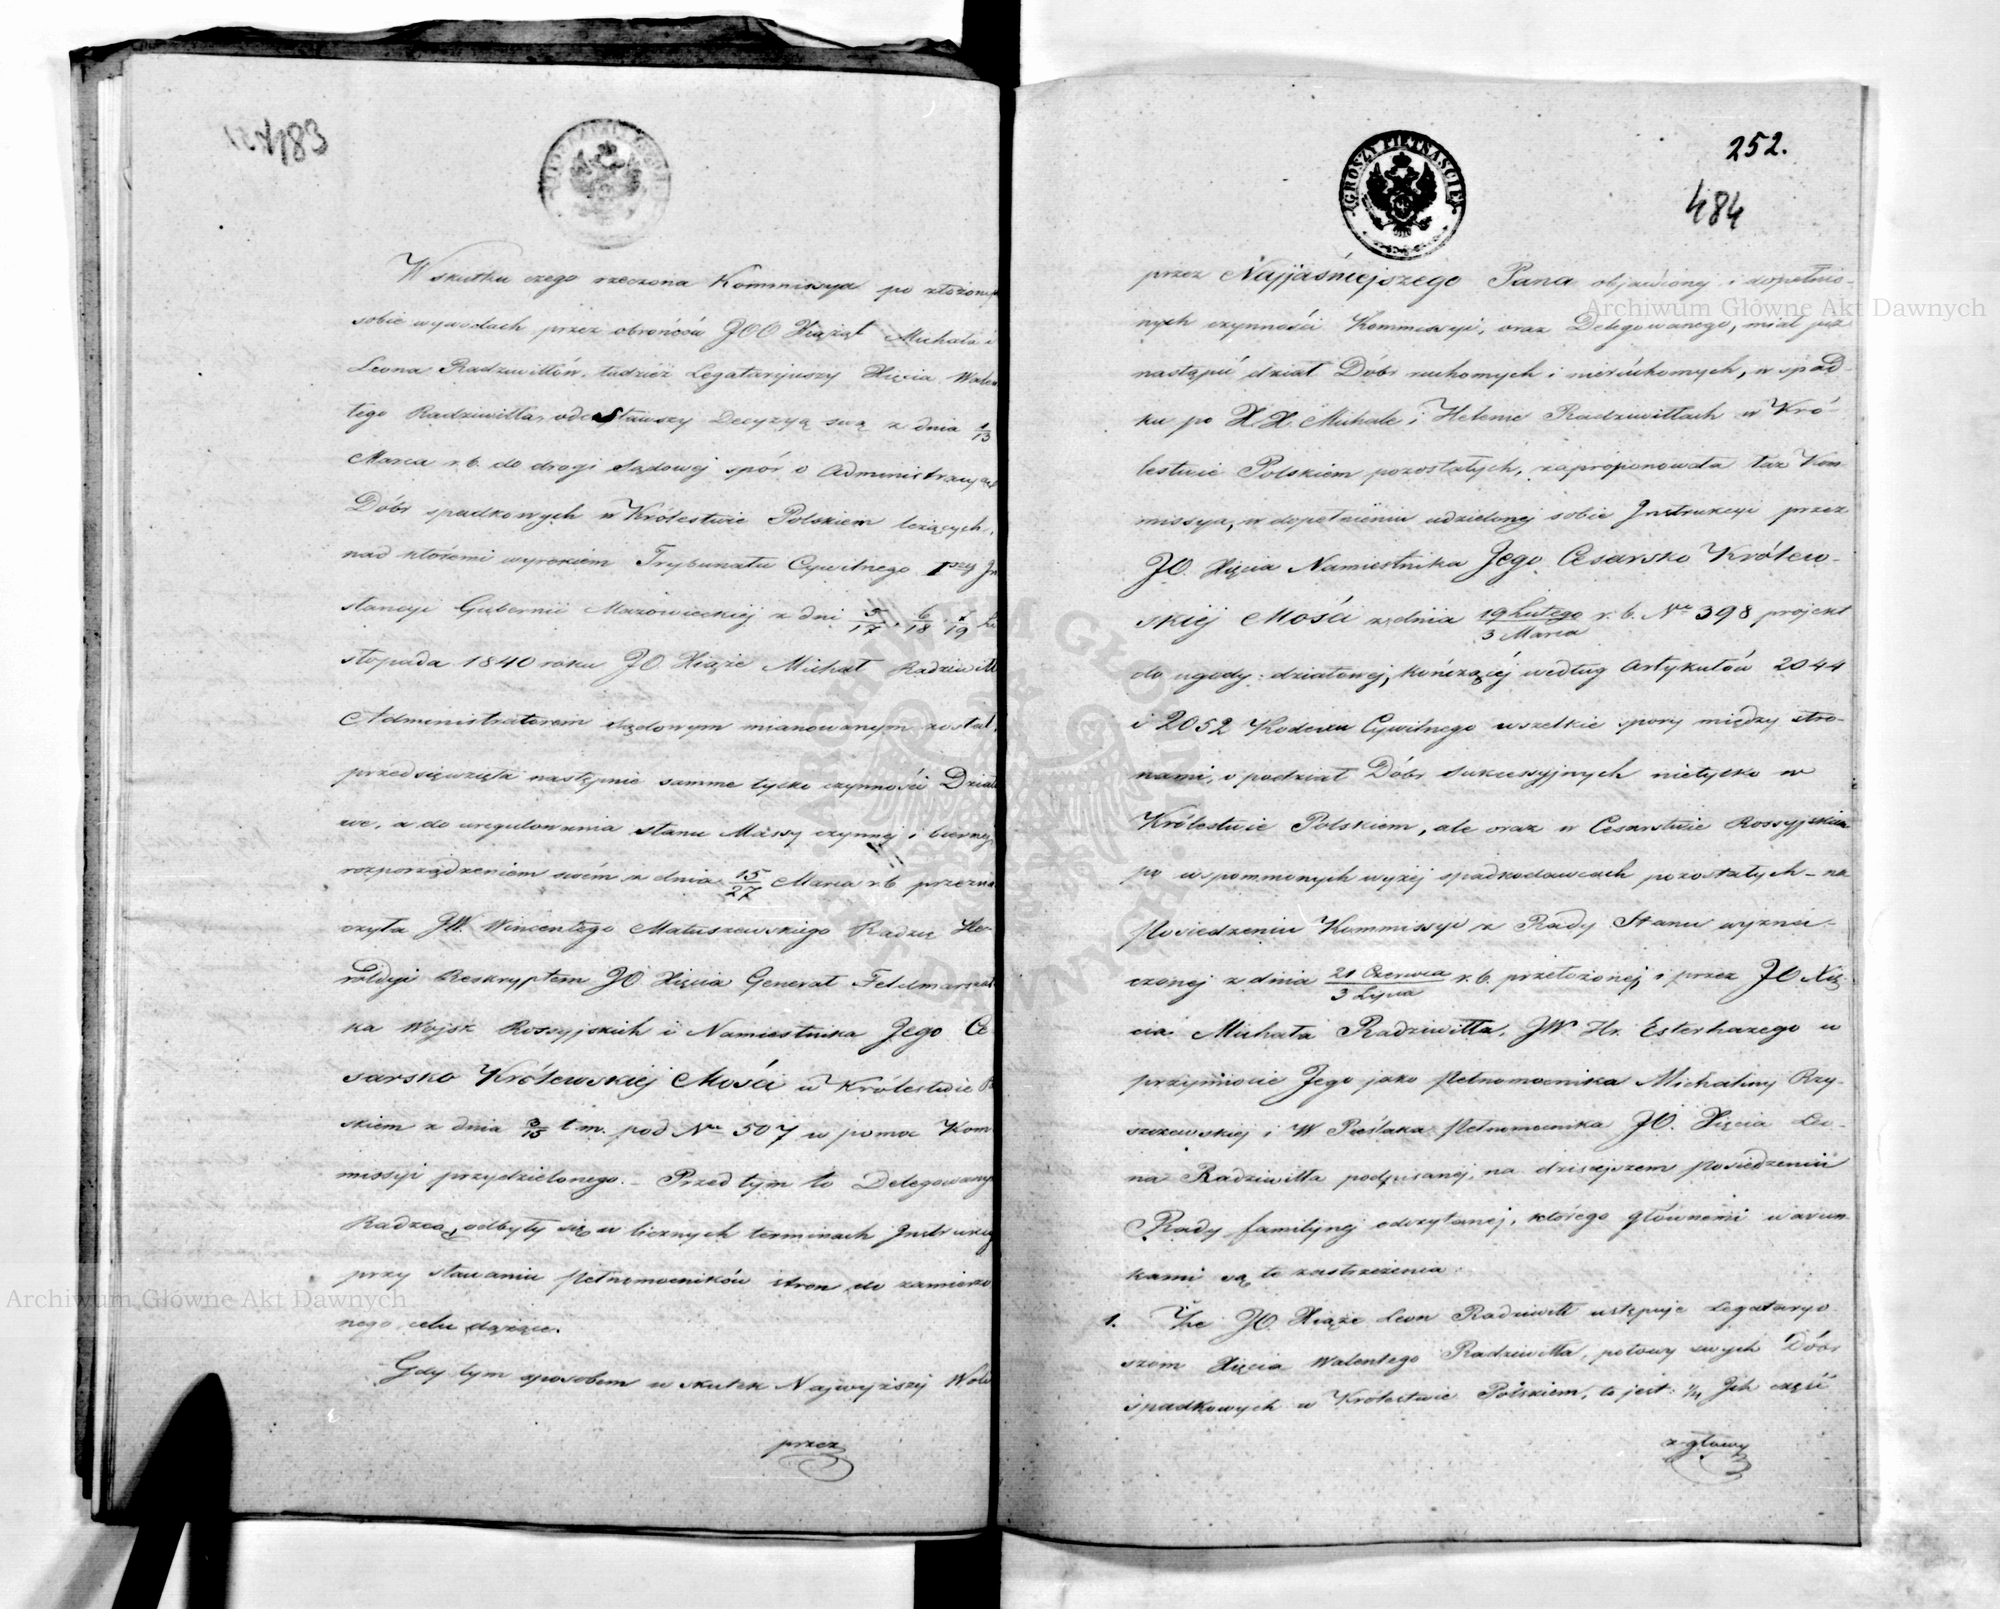 483
W skutku czego rzeczona Kommissya po złożonych
sobie wywodach przez obrońców JOO Xiążąt Michała i
Leona Radziwiłłów, tudzież Legatarjuszy Xięcia Walen
tego Radziwiłła, odesławszy Decyzyą swą z dnia 1/13
Marca r. b. do drogi Sądowej spór o Administracyą
Dóbr spadkowych w Królestwie Polskiem leżących,
nad któremi wyrokiem Trybunału Cywilnego 1szej In
stancyi Gubernii Mazowieckiej z dni 5/17, 6/18, 7/19 Li
stopada 1840 roku JO. Xiąże Michał Radziwiłł
Administratorem Sądowym mianowanym został,
przedsięwzięła następnie samme tylko czynności Dzia
we, a do uregulowania stanu Massy czynnej i biernej
rozporządzeniem swém z dnia 15/27 Marca r. b. przezna
czyła JW. Wincentego Matuszewskiego Radzcę He-
roldyi Reskryptem JO Xięcia Generał Feldmarszał
ka Wojsk Rossyjskich i Namiestnika Jego Ce
sarsko Królewskiej Mości w Królestwie Po
skiem z dnia 3/15 t. m. pod Nr 507 w pomoc Kom
missyi przydzielonego. – Przed tym to Delegowanym
Radzcą, odbyły się w licznych terminach Instrukcye
przy stawaniu Pełnomocników stron, do zamierzo
nego celu dążące.
Gdy tym sposobem w skutek Najwyższej Woli
przez
GROSZY PIĘTNAŚCIE
252.
484
przez Najjaśniejszego Pana objawionej i dopełnio-
nych czynności Kommissyi, oraz Delegowanego, miał już
nastąpić dział Dóbr ruchomych i nieruchomych, w spad-
ku po X.X. Michale i Helenie Radziwiłłach w Kró-
lestwie Polskiem pozostałych, zaproponowała taż Kom
missya, w dopełnieniu udzielonej sobie Instrukcyi przez
JO. Xięcia Namiestnika Jego Cesarsko Królew-
skiej Mości z dnia 19 Lutego/3 Marca r. b. Nr 398 projekt
do ugody działowej, kończącej według Artykułów 2044
i 2052 Kodexu Cywilnego wszelkie spory między stro-
nami, o podział Dóbr Sukcessyjnych nietylko w
Królestwie Polskiem, ale oraz w Cesarstwie Rossyjskiem
po wspomnionych wyżej spadkodawcach pozostałych – na
Posiedzeniu Kommissyi z Rady Stanu wyzna-
czonej z dnia 21 Czerwca/3 Lipca r. b. przełożonej, i przez JO Xię-
cia Michała Radziwiłła, JW Hr. Esterhazego w
przymiocie Jego jako Pełnomocnika Michaliny Rzy-
szczewskiej i W. Pieślaka Pełnomocnika JO. Xięcia Leo-
na Radziwiłła podpisanej, na dzisiejszem Posiedzeniu
Rady familijnej odczytanej, którego głównemi warun-
kami są te zastrzeżenia:
1. Że JO. Xiąże Leon Radziwiłł ustępuje Legataryu-
szom Xięcia Walentego Radziwiłła, połowy swych Dóbr
spadkowych w Królestwie Polskiem, to jest: 1/4 Ich część
z głowy
Archiwum Główne Akt Dawnych
Archiwum Główne Akt Dawnych
ARCHIWUM GŁÓWNE AKT DAWNYCH